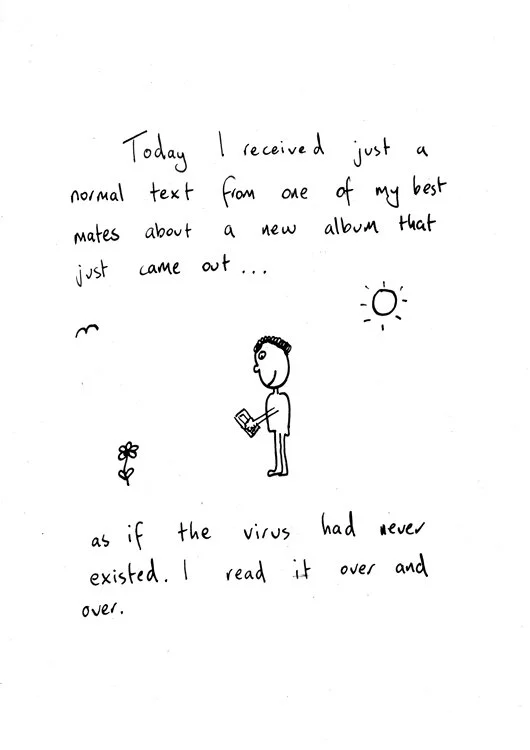 Today I received just a
normal text from one of my best
mates about a new album that
just came out...
as if the virus had never
existed. I read it over and
over.